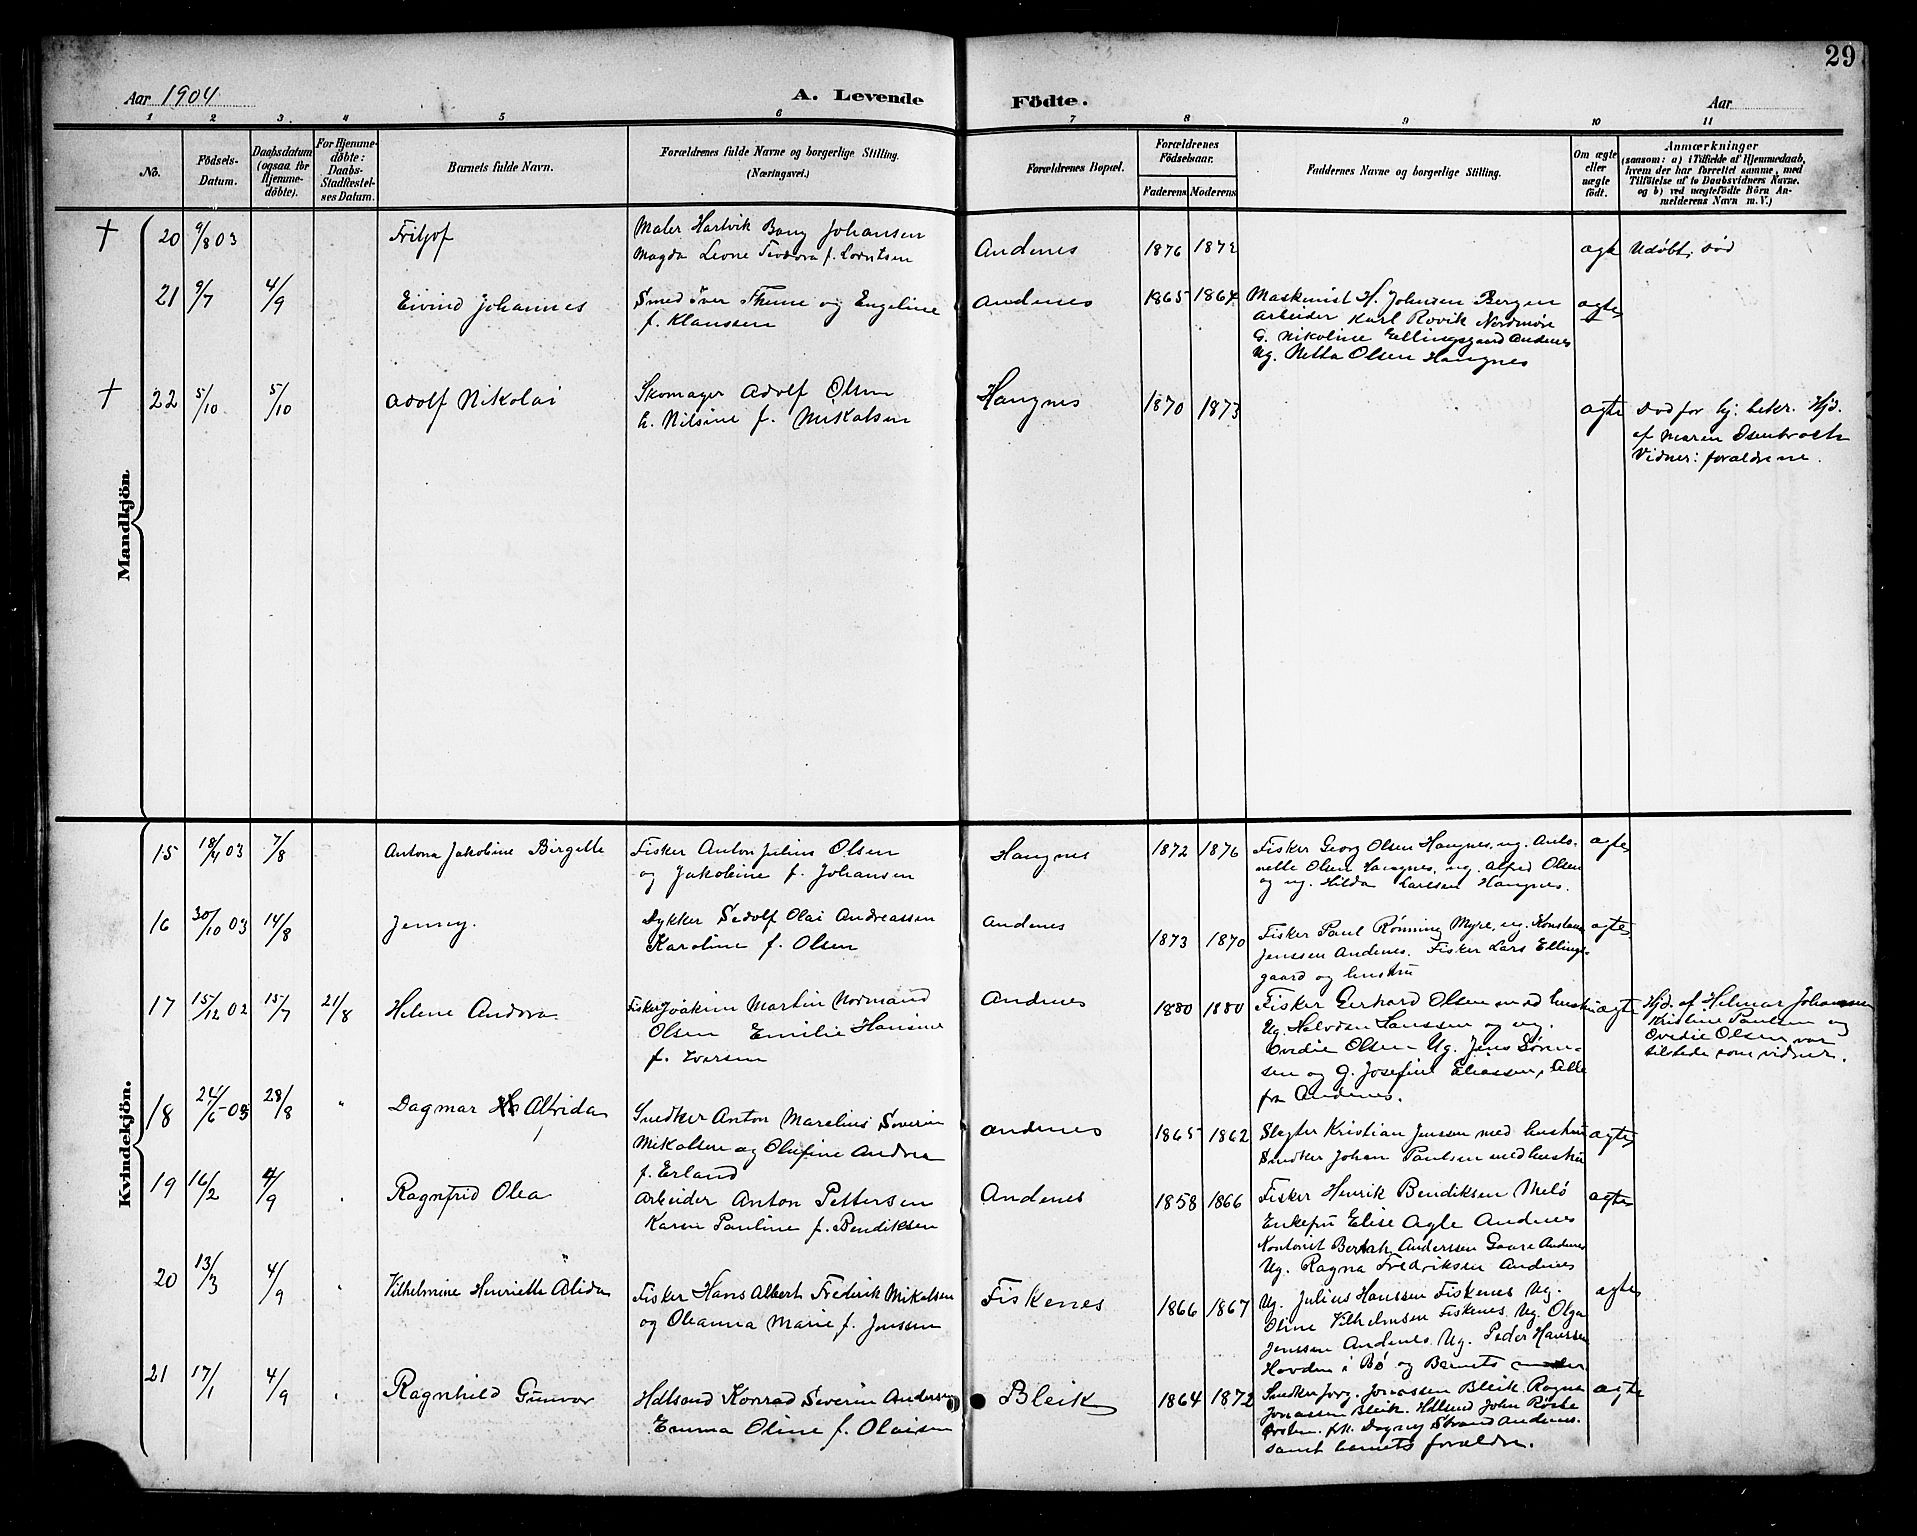 29
Aar 1904
A. Levende
Födte.
Aar
1 2 3. 4 5 6 7 8 9 10 11
No.
Födsels-
Datum.
Daabsdatum
(ogsaa for
Hjemme-
döbte).
For Hjemme-
döbte:
Daabs-
Stadfæstel-
ses Datum.
Barnets fulde Navn.
Forældrenes fulde Navne og borgerlige Stilling.
(Næringsvei.)
Forældrenes Bopæl.
Forældrenes
Födselsaar.
Faderens
Moderens
Faddernes Navne og borgerlige Stilling.
Om ægte
eller
uægte
födt.
Anmærkninger
(saasom: a) i Tilfælde af Hjemmedaab,
hvem der har forrettet samme, med
Tilföielse af to Daabsvidners Navne,
og b) ved uægtefödte Börn An-
melderens Navn m. V.)
Mandkjön
† 20 9/8 03
Fritjof
Maler Hartvik Bang Johansen
Magda Leone Teodora f. Lorntsen
Andenes
1876 1872
agte
Udøbt, død
21 9/7 4/9
Eivind Johannes
Smed Iver Theme og Engeline
f. Klaussen
Andenes
1865 1864
Maskinist H. Johnsen Bergen
Arbeider Karl Rovik Nordmøre
G. Nikoline Ellingsgaard Andenes
Ug. Netta Olsen Haugnes
agte
† 22 5/10 5/10
Adolf Nikolai
Skomager Adolf Olsen
G. Nilsine f. Mikalsen
Haugnes
1870 1873
agte
Død før hj. bekr. Hjd.
af Maren Osenbroch
Vidner: forældrene.
Kvindekjön.
15 18/4 03 7/8
Antona Jakobine Birgette
Fisker Anton Julius Olsen
og Jakobine f. Johansen
Haugnes
1872 1876
Fisker Georg Olsen Haugnes, ug. Anto-
nette Olsen Haugnes, ug. Alfred Olsen
og ug. Hilda Karlsen Haugnes.
agte
16 30/10 03 14/8
Jenny.
Dykker Sedolf Olai Andreassen
Karoline f. Olsen
Andenes
1873 1870
Fisker Paul Rønning Myre, ug. Konstanse
Jenssen Andenes. Fisker Lars Ellings-
gaard og hustru
agte
17 15/12 02 15/7 21/8
Helene Andora
Fisker Joakim Martin Normand
Olsen Emilie Hansine
f. Iversen
Andenes
1880 1880
Fisker Gerhard Olsen med hustru
Ug. Halvdan Hanssen og ug.
Ovedie Olsen Ug. Jens Søren-
sen og g. Josefine Eliassen, Alle
fra Andenes.
agte
Hjd. af Helmar Johansen
Kristine Paulsen og
Ovedie Olsen var
tilstede som vidner.
18 24/6 - 03 28/8 "
Dagmar Alvida
Snedker Anton Marelius Soverin
Mikalsen og Olufine Andrea
f. Erland
Andenes
1865 1862
Slagter Kristian Jenssen med hustru
Snedker Johan Paulsen med hustru
agte
19 16/2 4/9 "
Ragnfrid Olea
Arbeider Anton Pettersen
Karen Pauline f. Bendiksen
Andenes
1858 1866
Fisker Henrik Bendiksen Melö
Enkefru Elise Agle Andenes
Kontorist Anderssen Gaare Andenes
Ug. Ragna Fredriksen Andenes
agte
20 13/3 4/9 "
Vilhelmine Henriette Alida
Fisker Hans Albert Frederik Mikalsen
og Oleanna Marie f. Jenssen
Fiskenes
1866 1867
Ug. Julius Hanssen Fiskenes Ug.
Oline Vilhelmsen Fiskenes, Ug Olga
Jenssen Andenes, Ug. Peder Hanssen
Hovden i Bø og Barnets moder
agte
21 17/1 4/9 "
Ragnhild Gunvor
Hdlsmd Konrad Severin Andersen
Emma Oline f. Olaisen
Bleik
1864 1872
Snedker Jörg. Jonassen Bleik. Ragna
Jonassen Bleik. Hdlsmd John Röske
frk. Dagny Strand Andenes.
samt barnets forældre.
agte